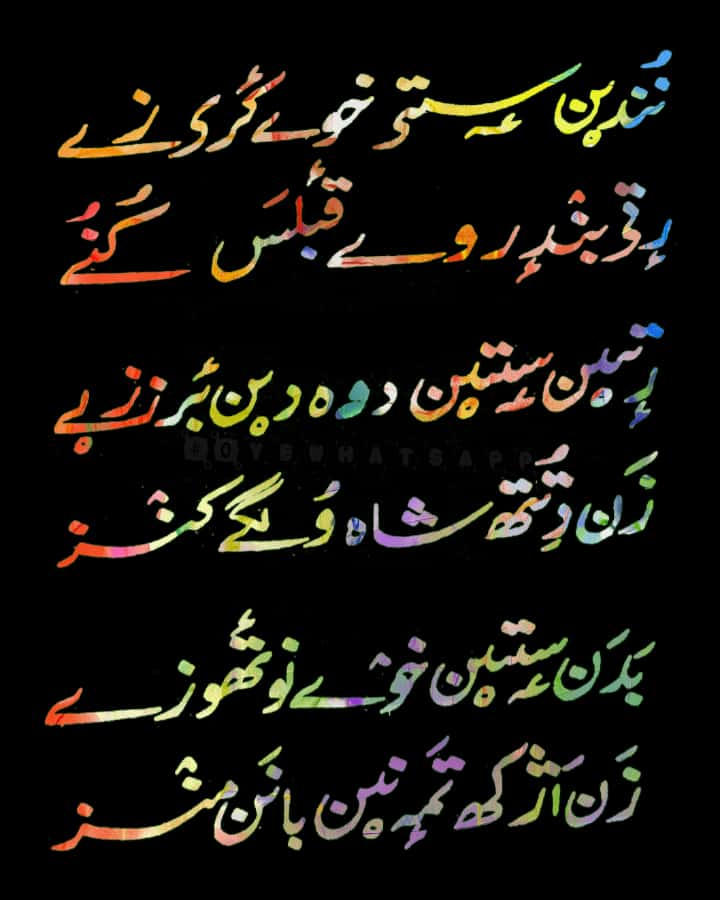 نُندؠن سٕتی خوے گرٔی زے
رٕتی بندٕر وے قٔبلَس کُنُے
رٕتؠن سٕتؠن دوہ دؠن بٔرززؠے
زَن دِتُتھ شاہ وُلگے کنز
بَدَن سٕتؠن خوے نو تھٔوزے
زَن اَژکھ تَمہٕ نؠن بانَن منز
#OYEWHATSAPP